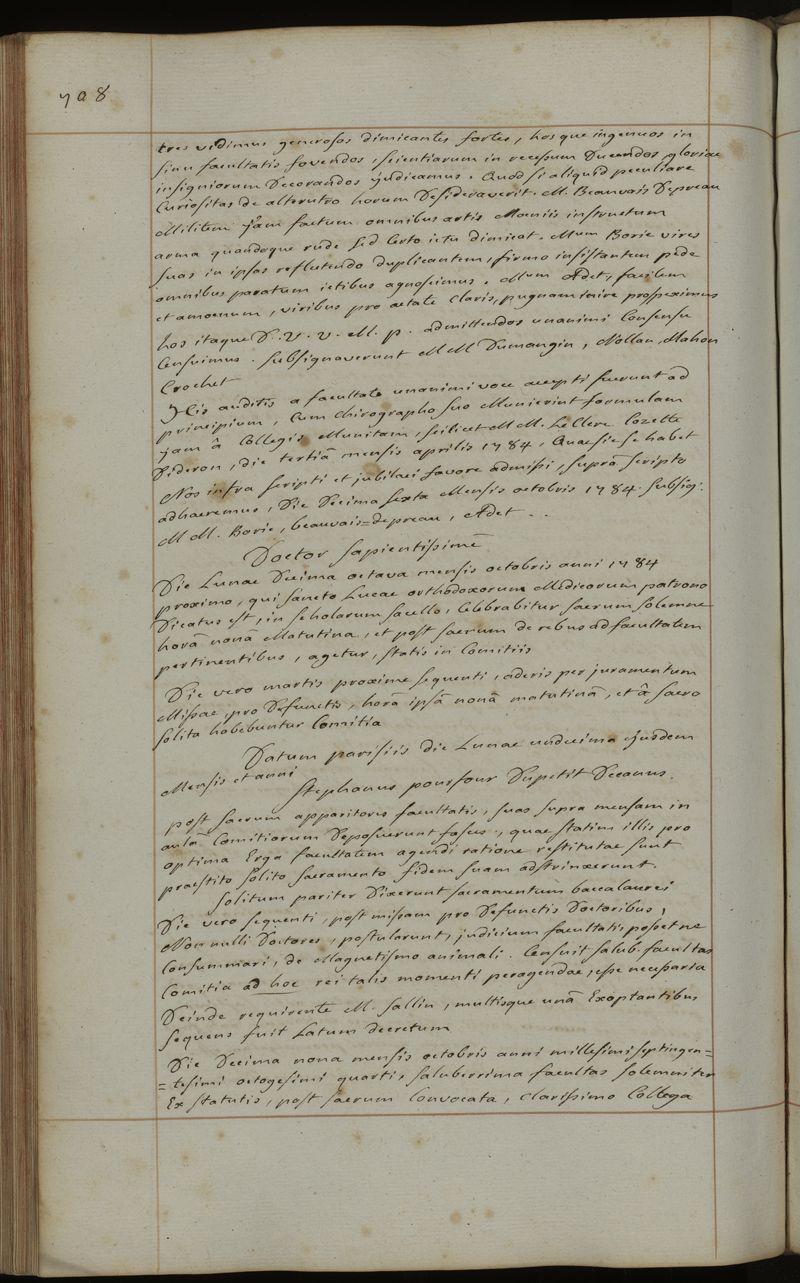 708
tres vidimus generosos dimicantes fortes, hosque ingenuos in
sinu facultatis fovendos, scientiarum in recessum Ducendos gloriae
insigniorum Decorandos judicamus. Quod si aliquid peculiare
Curiositas de alterutro horum Desideraverit. M. Beauvais Depreau
Militem jam factum omnibus artis Moeniis instructum
arma quandoque rude sed certo ictu dimicat. Mum Borie vires
suas in ipsas reflectendo duplicantem, firmo insistantem pede
omnibus paratum ictibus agnoscimus. Mum Adet, facilem
et amoenum, viribus pro aetate claris, pugnam inire prospeximus
hos itaque D. V. V. M. p. admittendos unanimi Consensu
Censuimus. subsignaverunt MM Dumangin, Nollan, Mahon
Crochet
His auditis a facultate unanimi voce accepti fuerunt ad
principium, Cum chirographo suo Munierint formulam
jam â Collegis Munitam, scilicet MM. Leclerc Cozette
Dideron, die tertiâ mensis aprilis 1784, Quae sic se habet
Nos infra scripti et jubilaei favore admissi, suprâ scripto
adhaeremus, Die Decima sexta Mensis octobris 1784. subsig.
MM. Borie, beauvais=depreau, Adet..
Doctor sapientissime
Die Lunae Decima octava mensis octobris anni 1784
proximo, qui sancto Lucae orthodoxorum Medicorum patrono
Dicatus est, in scholarum sacello, Celebrabitur sacrum solemne
horâ nonâ Matutina, et post sacrum de rebus ad facultatem
pertinentibus, agetur, statis in Comitiis
Die vero martis proxime sequenti, aderis per juramentum
Missae pro Defunctis, horâ ipsâ nonâ matutinâ, et â sacro
solita habebuntur Comitia
Datum parisiis die Lunae undecima ejusdem
Mensis et anni
stephanus pourfour Dupetit Decanus.
post sacrum apparitores facultatis, suas supra mensam in
aulâ Comitiorum Deposuerunt fasces, quae statim illis pro
optima Erga facultatem agendi ratione restitutae sunt
praestito solito sacramento fidem suam adstrinxerunt.
Solitum pariter Dixerunt sacramentum baccalaurei
Die vero sequenti, post missam pro Defunctis Doctoribus,
Non nulli Doctores, postularunt, judicium facultatis posset ne
Consummari, de Magnetismo animali. Censuit salub. facultas
Comitia ad hoc rei talis momenti peragendae, esse necessaria
Deinde requirente M. sallin, multisque unâ Exoptantibus
sequens fuit Latum decretum
Die Decima nona mensis octobris anni millesimi septingen=
=tesimi octogesimi quarti, saluberrima facultas solemniter
Ex statutis, post sacrum Convocata, clarissimo Collega